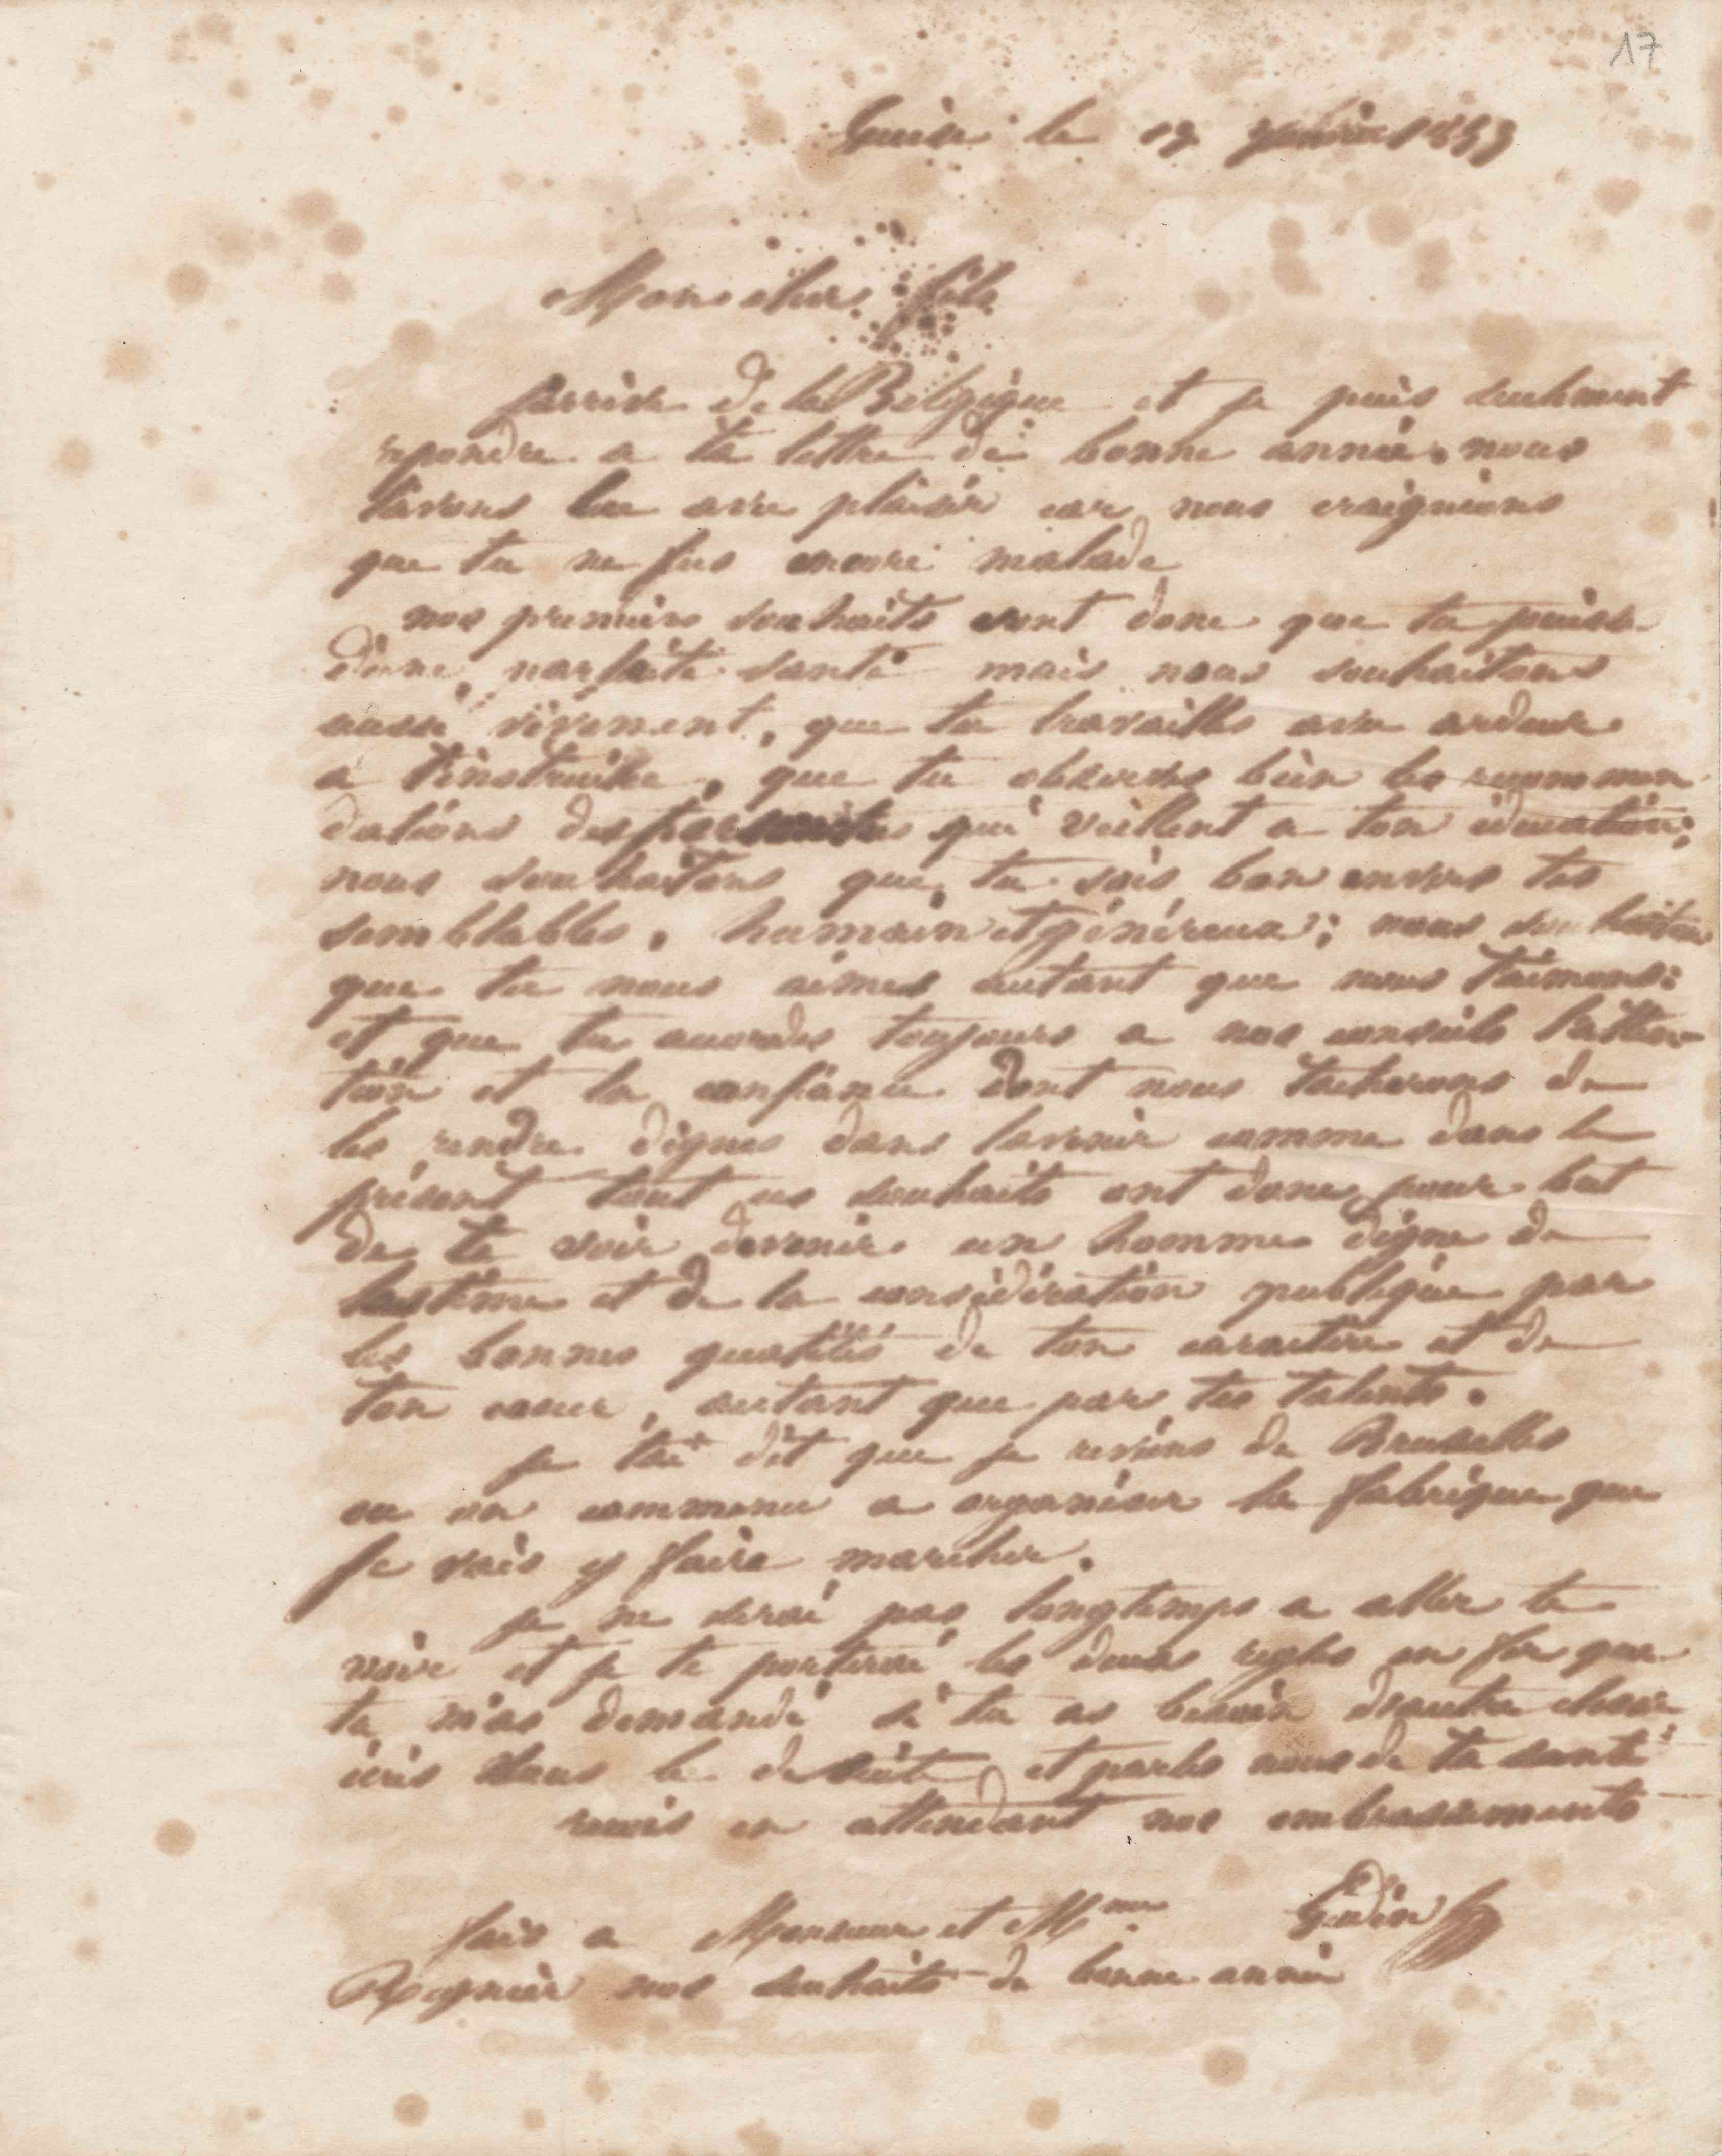 17
Guise le 17 janvier 1853
Mon cher fils
j'arrive de la Belgique et je puis seulement
repondre a ta lettre de bonne année. nous
lavons lue avec plaisir car nous craignions
que tu ne fus encore malade
nos premiers souhaits sont donc que tu puisse
d'une parfaite santé mais nous souhaitons
aussi vivement, que tu travailles avec ardeur
a t'instruire, que tu observes bien les recommen
dations des personnes qui veillent a ton éducation;
nous souhaitons que tu sois bon envers tes
semblables, humain et généreux; nous souhaitons
que tu nous aimes autant que nous t'aimons:
et que tu accordes toujours a nos conseils l'atten
tion et la confiance dont nous tacherons de
les rendre dignes dans lavenir comme dans le
présent tout ces souhaits ont donc pour but
de te voir devenir un homme digne de
lestime et de la considération publique par
les bonnes qualités de ton caractère et de
ton cœur, autant que par tes talents.
je tai dit que je reviens de Bruxelles
ou on commence a organiser la fabrique que
je vais y faire marcher.
je ne serai pas longtemps a aller te
voir et je te porterai les deux regles en fer que
tu m'as demandé si tu as besoin d'autre chose
écris nous le de suite, et parles nous de ta santé
recois en attendant nos embrassements
Godin
fais a Monsieur et Mme
Regnier nos souhaits de bonne année